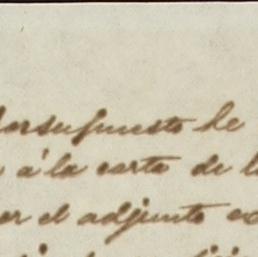 Por supuesto he
á la carta de l
er el adjunto ex